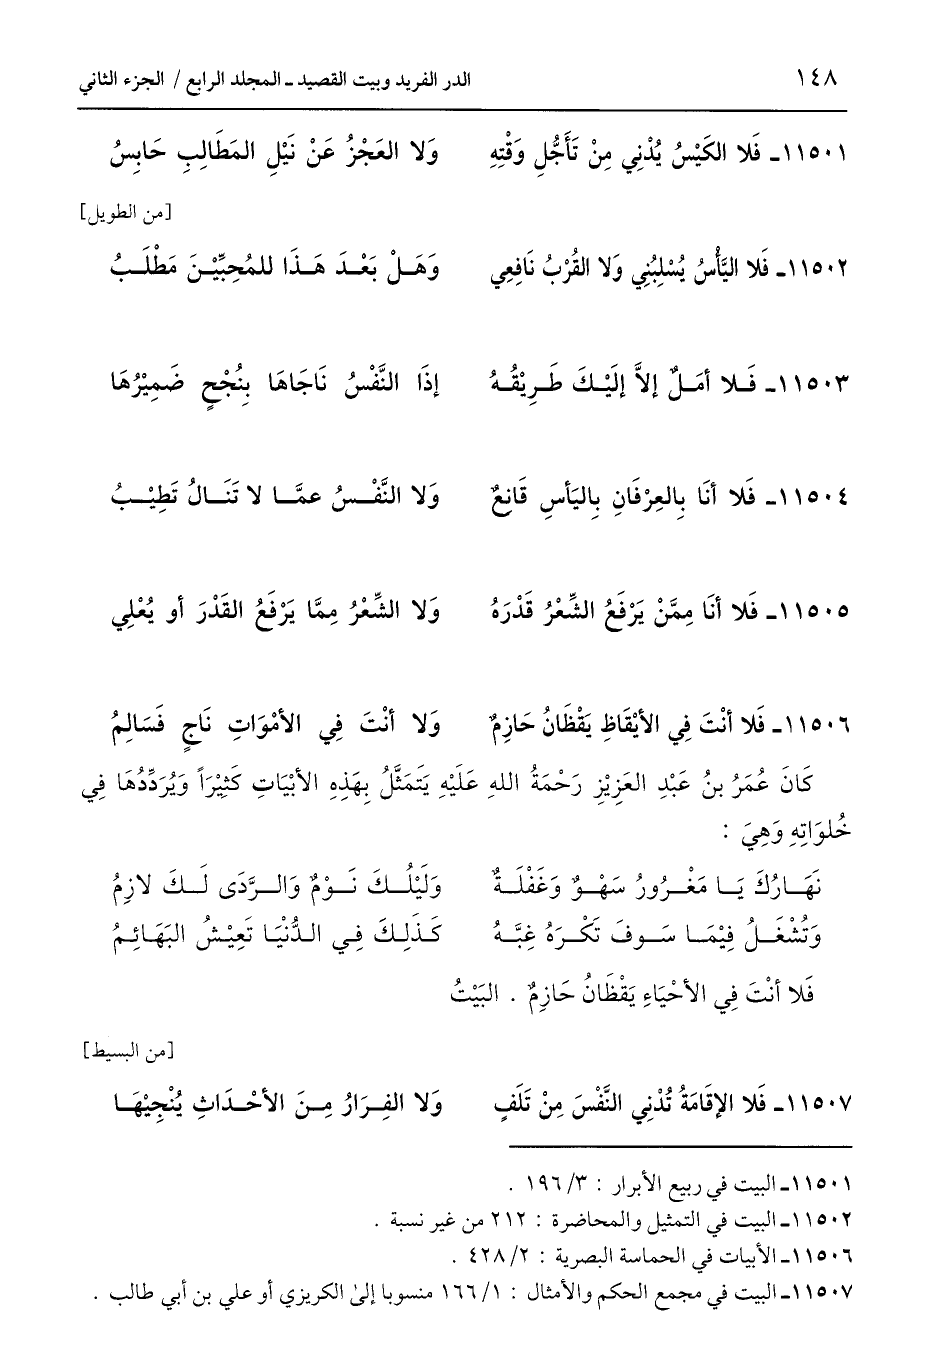 ١٤٨ الدر الفريد وبيت القصيد ـ المجلد الرابع / الجزء الثاني
١١٥٠١ـ فَلا الكَيْسُ يُدْنِي مِنْ تَأَجُّلِ وَقْتِهِ وَلا العَجْزُ عَنْ نَيْلِ المَطَالِبِ حَابِسُ
[من الطويل]
١١٥٠٢ـ فَلا اليَأْسُ يُسْلِبُنِي وَلا القُرْبُ نَافِعِي وَهَـلْ بَعْـدَ هَـذَا للمُحِبِّيْـنَ مَطْلَـبُ
١١٥٠٣ـ فَـلا أمَـلٌ إلاَّ إلَيْـكَ طَـرِيْقُـهُ إذَا النَّفْسُ نَاجَاهَا بِنُجْحٍ ضَمِيْرُهَا
١١٥٠٤ـ فَلا أنَا بِالعِرْفَانِ بِاليَأسِ قَانِعٌ وَلا النَّفْـسُ عمَّـا لا تَنَـالُ تَطِيْـبُ
١١٥٠٥ـ فَلا أنَا مِمَّنْ يَرْفَعُ الشِّعْرُ قَدْرَهُ وَلا الشِّعْرُ مِمَّا يَرْفَعُ القَدْرَ أو يُعْلِي
١١٥٠٦ـ فَلا أنْتَ فِي الأيْقَاظِ يَقْظَانُ حَازِمٌ وَلا أنْتَ فِي الأمْوَاتِ نَاجٍ فَسَالِمُ
كَانَ عُمَرُ بنُ عَبْدِ العَزِيْزِ رَحْمَةُ اللهِ عَلَيْهِ يَتَمَثَّلُ بِهَذِهِ الأبْيَاتِ كَثِيْرَاً وَيُرَدِّدُهَا فِي
خُلوَاتِهِ وَهِيَ :
نَهَـارُكَ يَـا مَغْـرُورُ سَهْـوٌ وَغَفْلَـةٌ وَلَيْلُـكَ نَـوْمٌ وَالـرَّدَى لَـكَ لازِمُ
وَتُشْغَـلُ فِيْمَـا سَـوفَ تَكْـرَهُ غِبَّـهُ كَـذَلِكَ فِـي الـدُّنْيَـا تَعِيْـشُ البَهَـائِـمُ
فَلا أنْتَ فِي الأحْيَاءِ يَقْظَانُ حَازِمٌ . البَيْتُ
[من البسيط]
١١٥٠٧ـ فَلا الإقَامَةُ تُدْنِي النَّفْسَ مِنْ تَلَفٍ وَلا الفِـرَارُ مِـنَ الأحْـدَاثِ يُنْجِيْهَـا
١١٥٠١ـ البيت في ربيع الأبرار : ٣/ ١٩٦ .
١١٥٠٢ـ البيت في التمثيل والمحاضرة : ٢١٢ من غير نسبة .
١١٥٠٦ـ الأبيات في الحماسة البصرية : ٢/ ٤٢٨ .
١١٥٠٧ـ البيت في مجمع الحكم والأمثال : ١/ ١٦٦ منسوبا إلىٰ الكريزي أو علي بن أبي طالب .